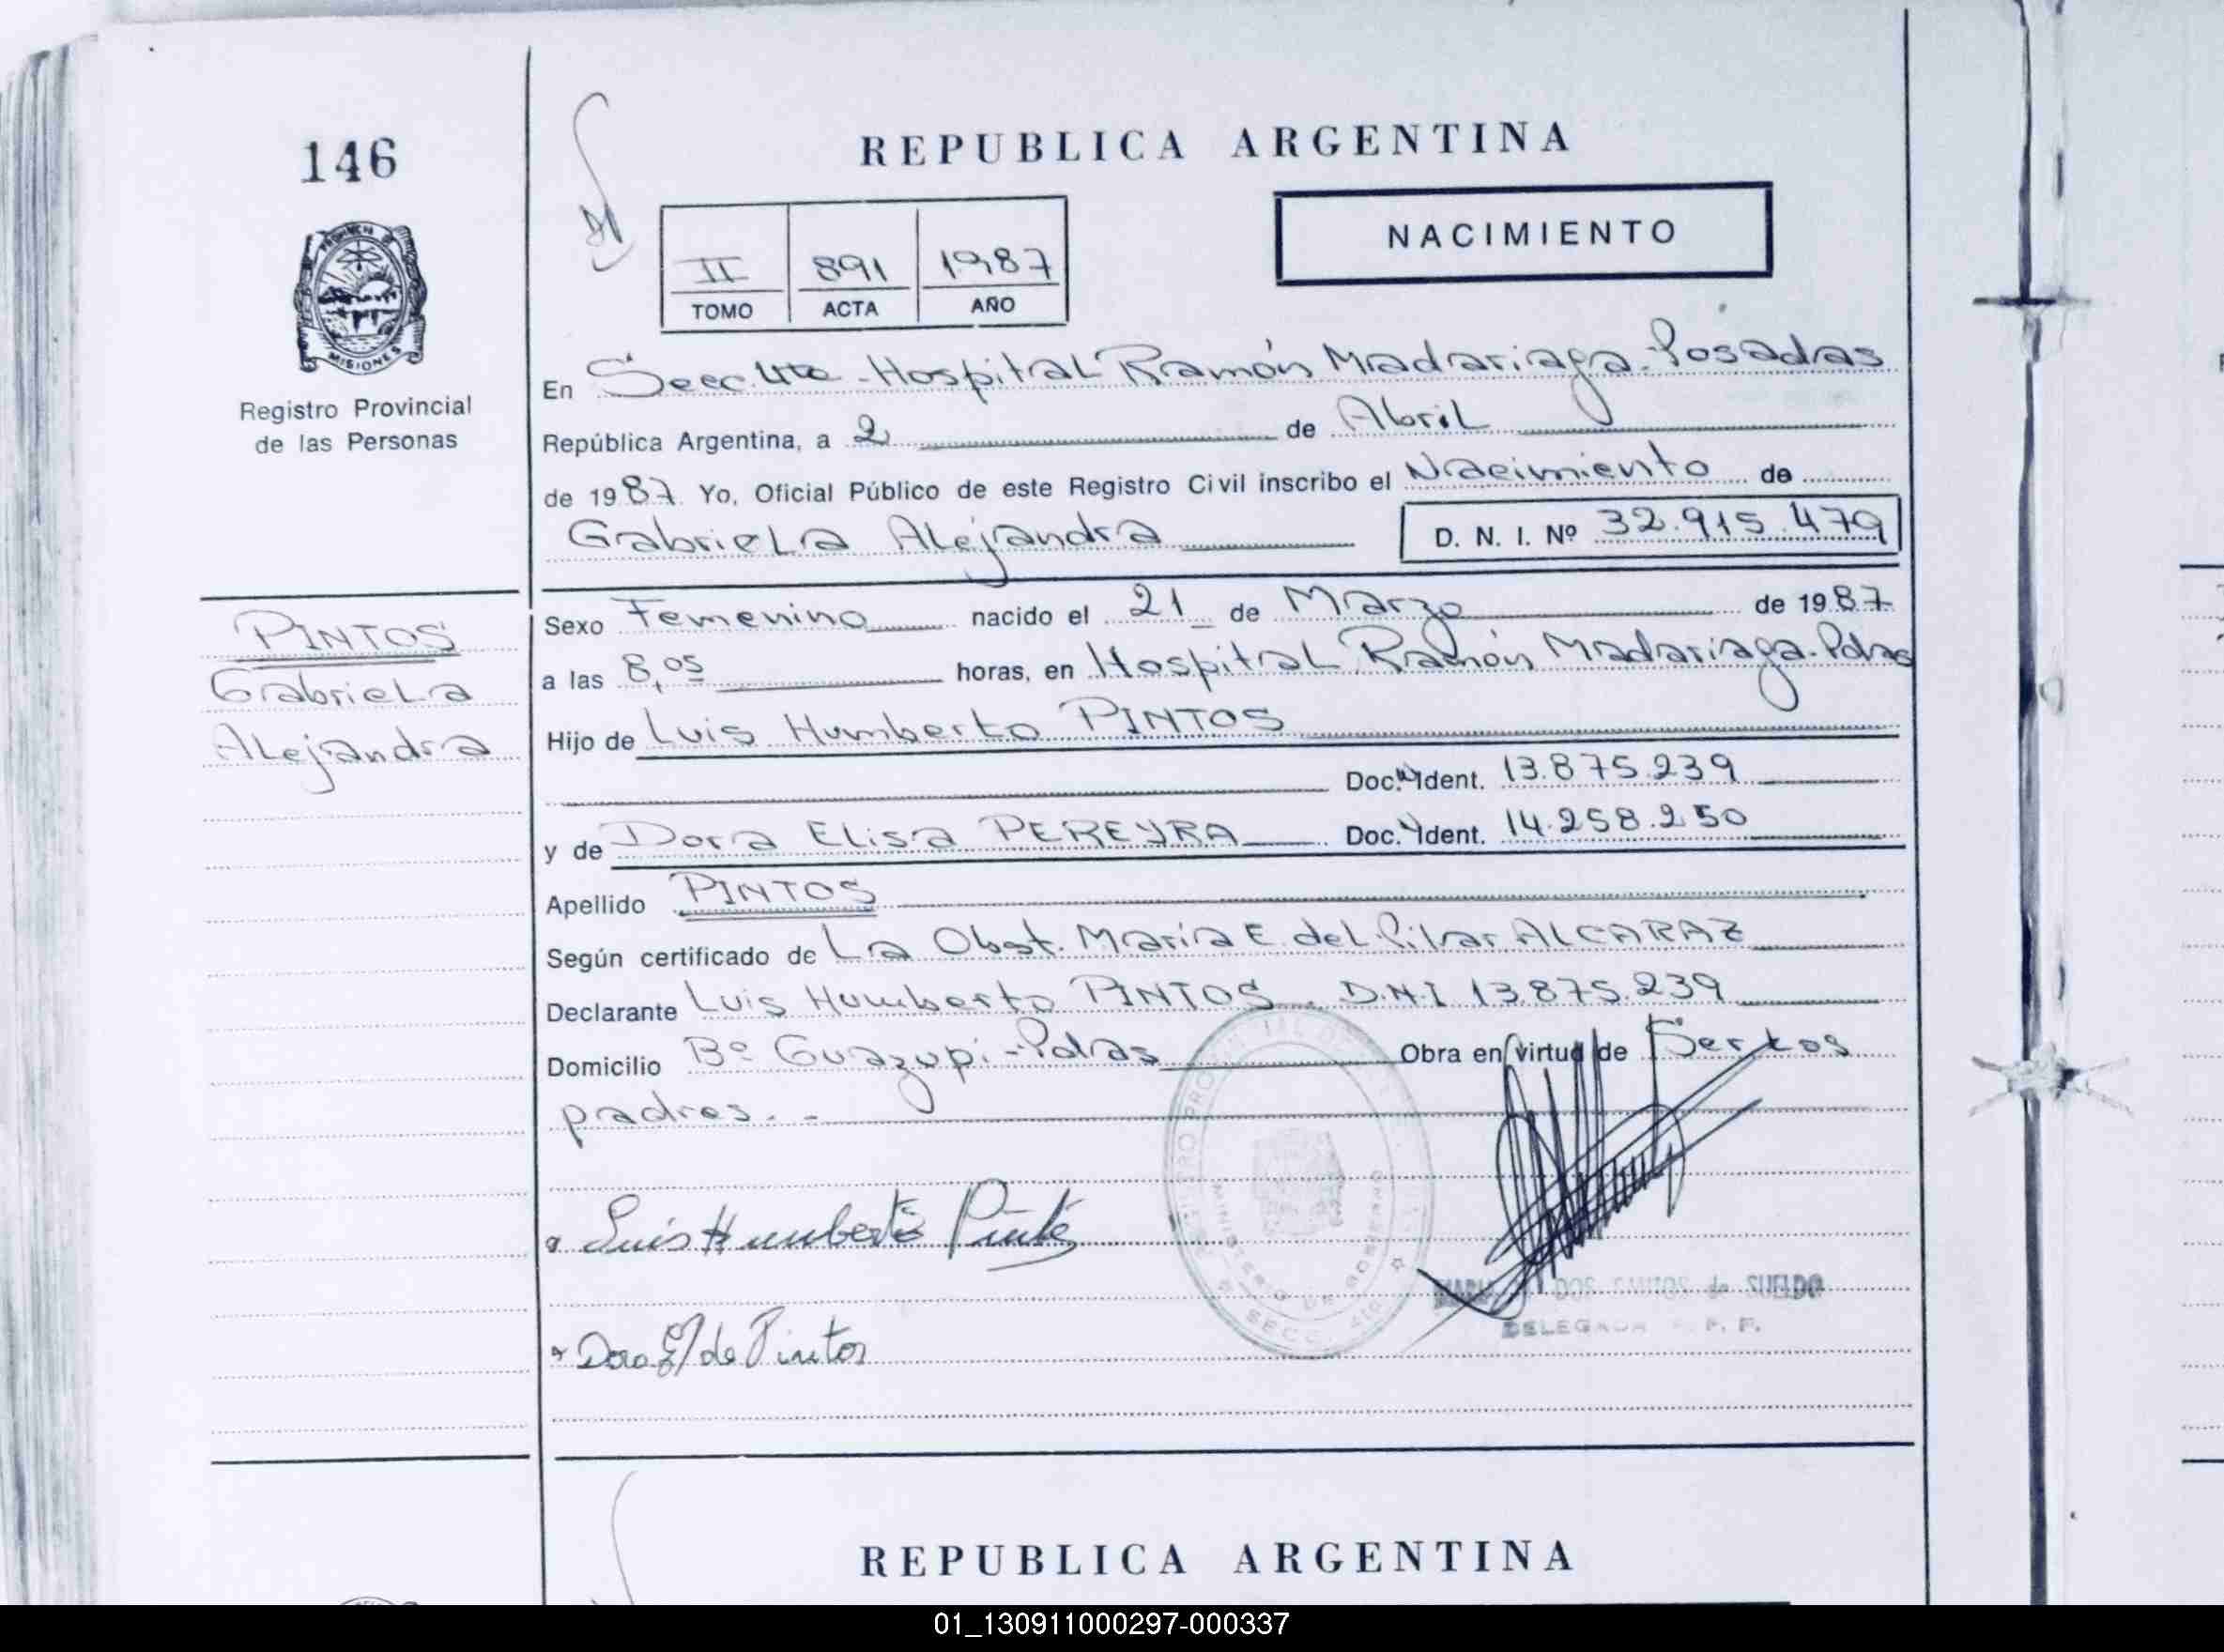 146
REPUBLICA ARGENTINA
NACIMIENTO
II 891 1987
TOMO ACTA AÑO
PROVINCIA DE
MISIONES
Registro Provincial
de las Personas
En Secc. 4ta - Hospital Ramón Madariaga - Posadas
República Argentina, a 2 de Abril
de 1987. Yo, Oficial Público de este Registro Civil inscribo el Nacimiento de
Gabriela Alejandra D. N. I. Nº 32.915.479
PINTOS
Gabriela
Alejandra
Sexo Femenino nacido el 21 de Marzo de 1987
a las 8,05 horas, en Hospital Ramón Madariaga - Pdas
Hijo de Luis Humberto PINTOS
Doc. Ident. 13.875.239
y de Dora Elisa PEREYRA Doc. Ident. 14.258.250
Apellido PINTOS
Según certificado de La Obst. María E. del Pilar ALCARAZ
Declarante Luis Humberto PINTOS. D.N.I 13.875.239
Domicilio Bº Guazupi - Pdas Obra en virtud de Ser los
padres. -
Luis Humberto Pintos
Dora E/ de Pintos
MINISTERIO DE GOBIERNO
SECC. 4ta
DOS SANTOS de SUELDO
DELEGADA R. P. P.
REPUBLICA ARGENTINA
01_130911000297-000337